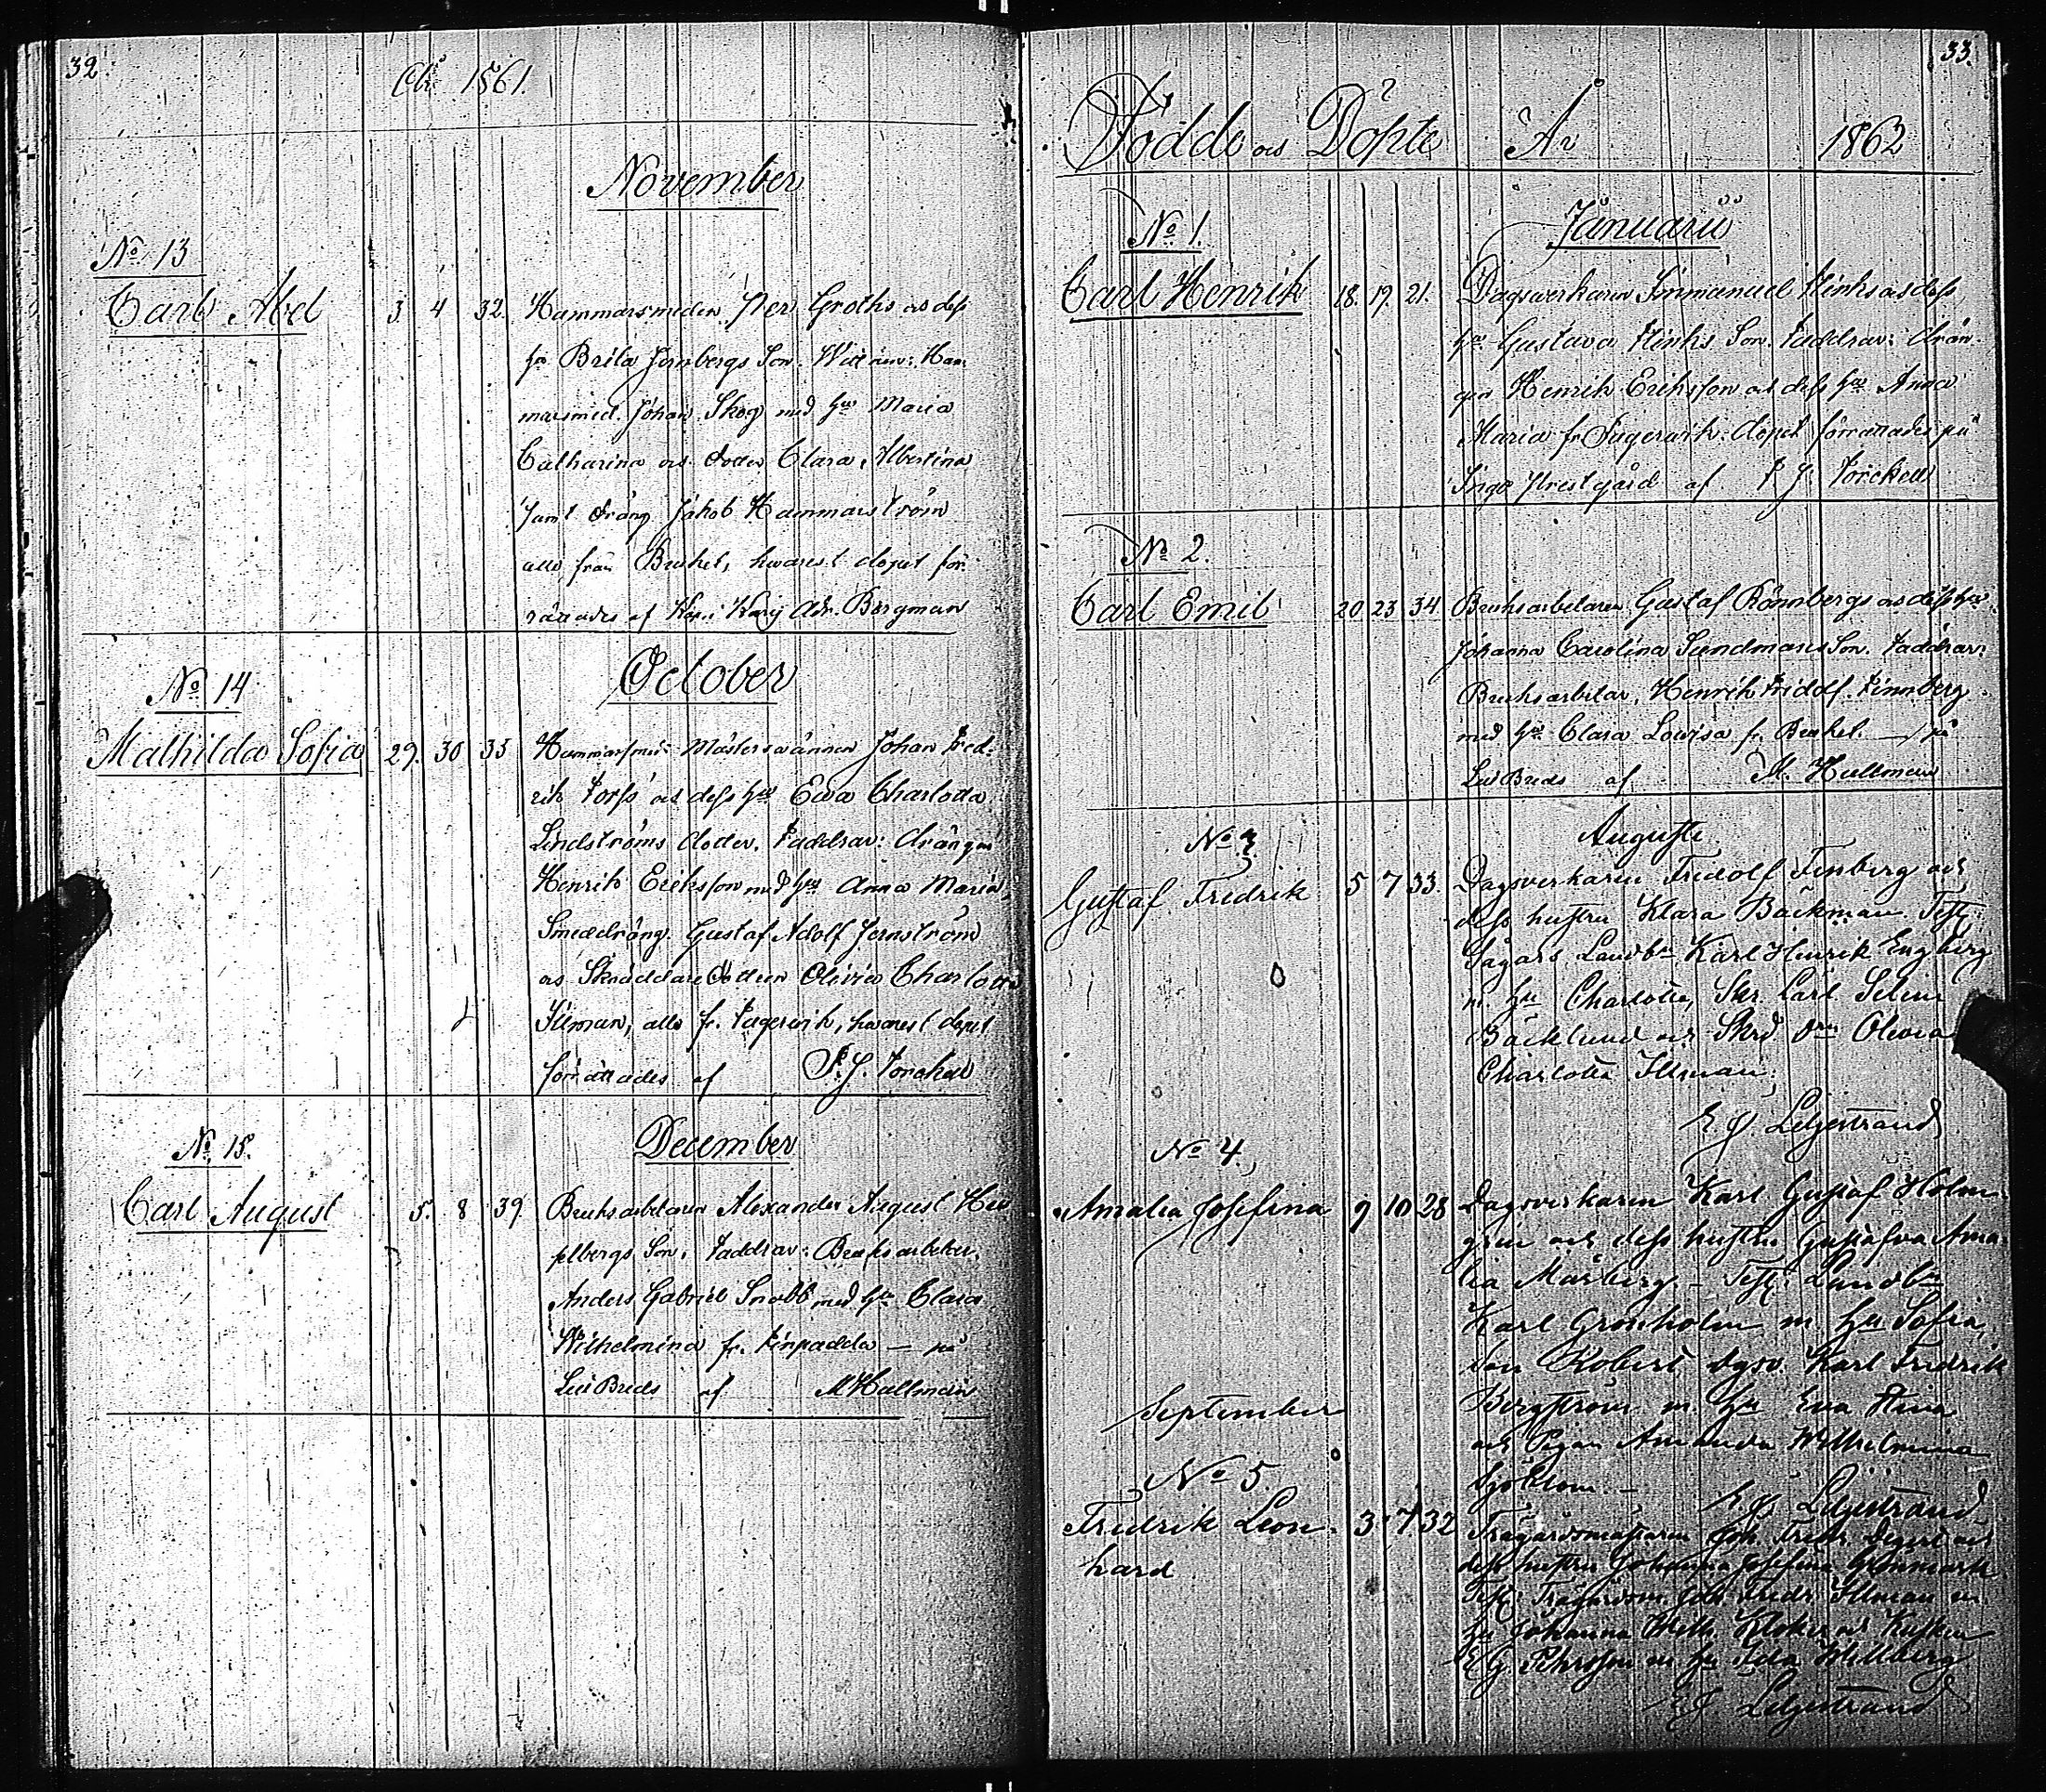 32
1861.
November
No 13
Carl Abel 3. 4 32. Hammarsmeden Per Groths och dess
hu Brita Jernbergs Son. Wittnen: Ham
marsmed. Johan Skog med hu Maria
Catharina och dotter Clara Albertina
samt dräng Jakob Hammarström
alla från Bruket, hwarest dopet för
rättades af Adr. Bergman
October
No 14
Mathilda Sofia 29. 30 33 Hammarsmeds Johan Fred-
rik Forss och dess hu Ewa Charlotta
Lindströms dotter. Faddrar: drängen
Henrik Eriksson med hu Anna Maria,
Smededräng Gustaf Adolf Jernström
och Skräddare Olivia Charlotta
Illman, alla fr. Fagerwik, hwarest dopet
förrättades af F. J. Forckell
December
No 15.
Carl August 5. 8 39 Bruksarbetaren Alexander August
Son. Faddrar: Bruksarbetar.
Anders Gabriel Snabb med hu Clara
Wilhelmina fr. Finpadda — på
af M Hallman
33.
Födde och Döpte År 1862
Januarii
No 1.
Carl Henrik 18. 19. 21. Dagsverkaren Immanuel Flinks och dess
hu Gustava Flinks Son. Faddrar: drän-
gen Henrik Eriksson och dess hu Anna
Maria fr Fagerwik: dopet förrättades på
Ingo Prestgård af F J Forckell
No 2.
Carl Emil 20 23 34 Bruksarbetaren Gustaf Rönnbergs och dess hu
Johanna Carolina Sundmans Son. Faddrar:
Bruksarbetar. Henrik Fridolf Finnberg
med hu Clara Lowisa fr. Bruket. — på
af M. Hallman
Augusti
No 3.
Gustaf Fredrik 5 7 33. Dagsverkaren Fridolf Finberg och
dess hustru Klara Bäckman. Test:
Karl Henrik Engberg
m. hu Charlotta, Skr. Carl Selim
Bäcklund och Skrd Olivia
Charlotta Illman.
E J. Liljestrand
No 4.
Amalia Josefina 9 10 28 Dagsverkaren Karl Gustaf Holm-
gren och dess hustru Gustafva Ama-
lia Mårberg — Test: Landb.
Karl Grönholm m hu Sofia,
Son Robert, dgsv. Karl Fredrik
Bergström m. hu Eva Stina
och Pigan Amanda Wilhelmina
Sjöblom. — E J. Liljestrand
September
No 5.
Fredrik Leon- 3 7 32 Trägårdsmästaren Joh. Fredr. Degert och
hard dess hustru Johanna Josefina
Test: Trägårdsm. Joh. Fredr. Illman m
hu Johanna Wilh. och Kusken
E G m hu Ida Willberg
E J. Liljestrand